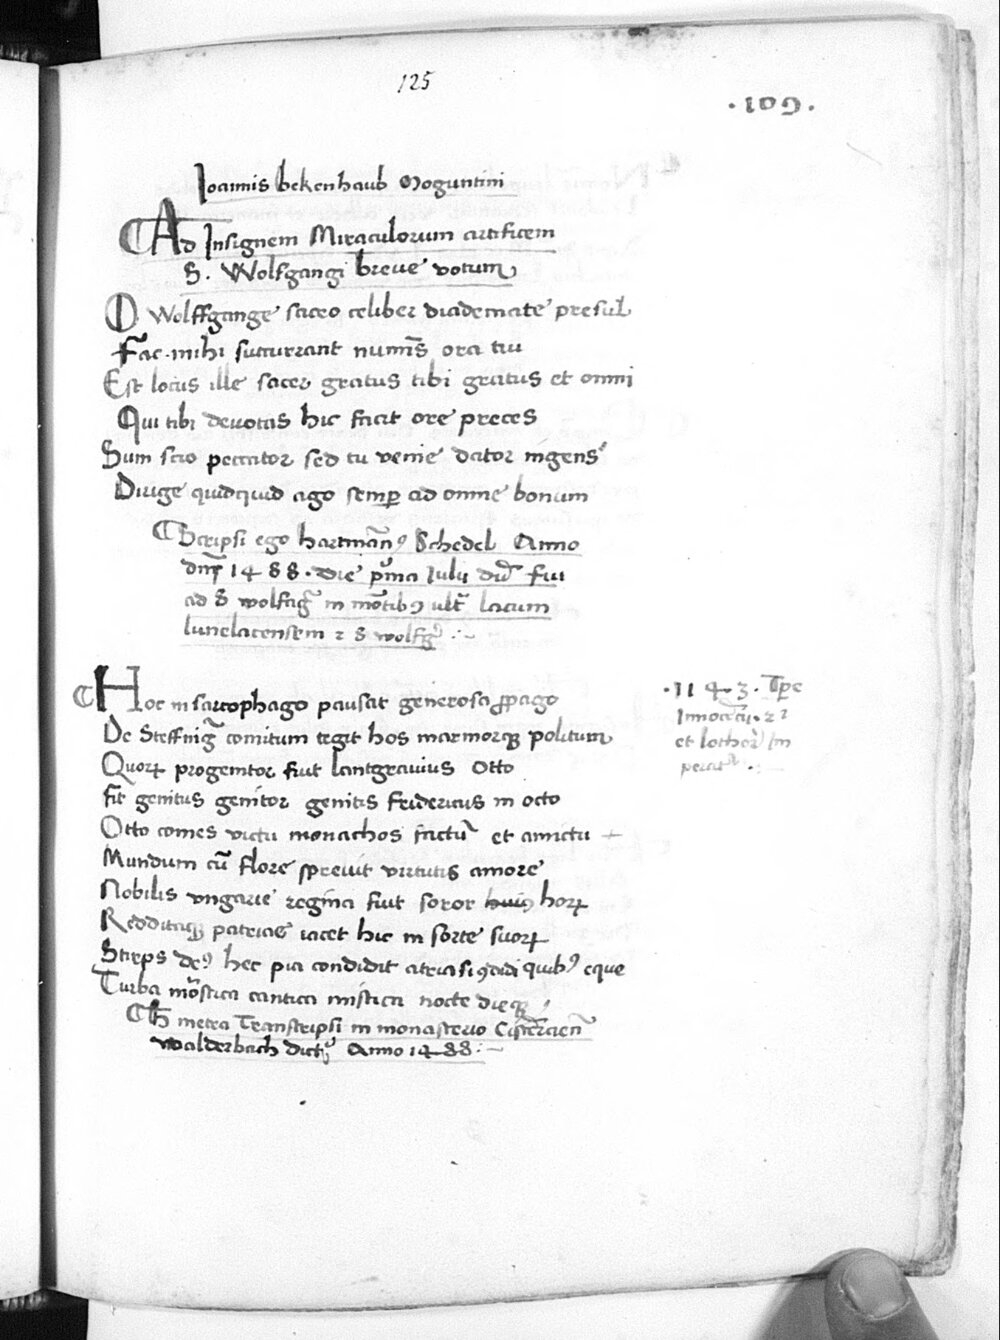 125
.109.
Ioannis bekenhaub Moguntini
Ad Insignem Miraculorum artificem
S. Wolfgangi breue votum
O Wolffgange sacro celiber diademate presul
Fac mihi succurrant numīs ora tui
Est locus ille sacer gratus tibi gratus et omni
Qui tibi deuotas hic facit ore preces
Sum scio peccator sed tu venie dator ingens
Dirige quidquid ago semꝑ ad omne bonum
Scripsi ego hartmānꝰ Schedel Anno
dnī 1488. die pͥma Iulij dū fui
ad S wolfgāg in mōtibꝯ ult̄ Lacum
lunelacensem ⁊ S wolfg
Hoc in sarcophago pausat generosa ꝓpago
De Steffnīg comitum tegit hos marmorqꝫ politum
Quoꝝ progenitor fuit lantgrauius Otto
fit genitus genitor genitis fridericus in octo
Otto comes victu monachos factur̄ et amictu
Mundum cū flore spreuit virtutis amore
Nobilis vngarie regina fuit soror huiꝯ hoꝝ
Redditaqꝫ patriae iacet hic in sorte suoꝝ
Stirps deꝯ hec pia condidit atria quibꝯ eque
Turba mōstica cantica mistica nocte dieqꝫ
H̄ metra Transcripsi in monasterio Cistercieñ
walderbach dicto Anno 1488
.1143. Tꝑe
Innocētij. 2ⁱ
et lotharij Im
perat